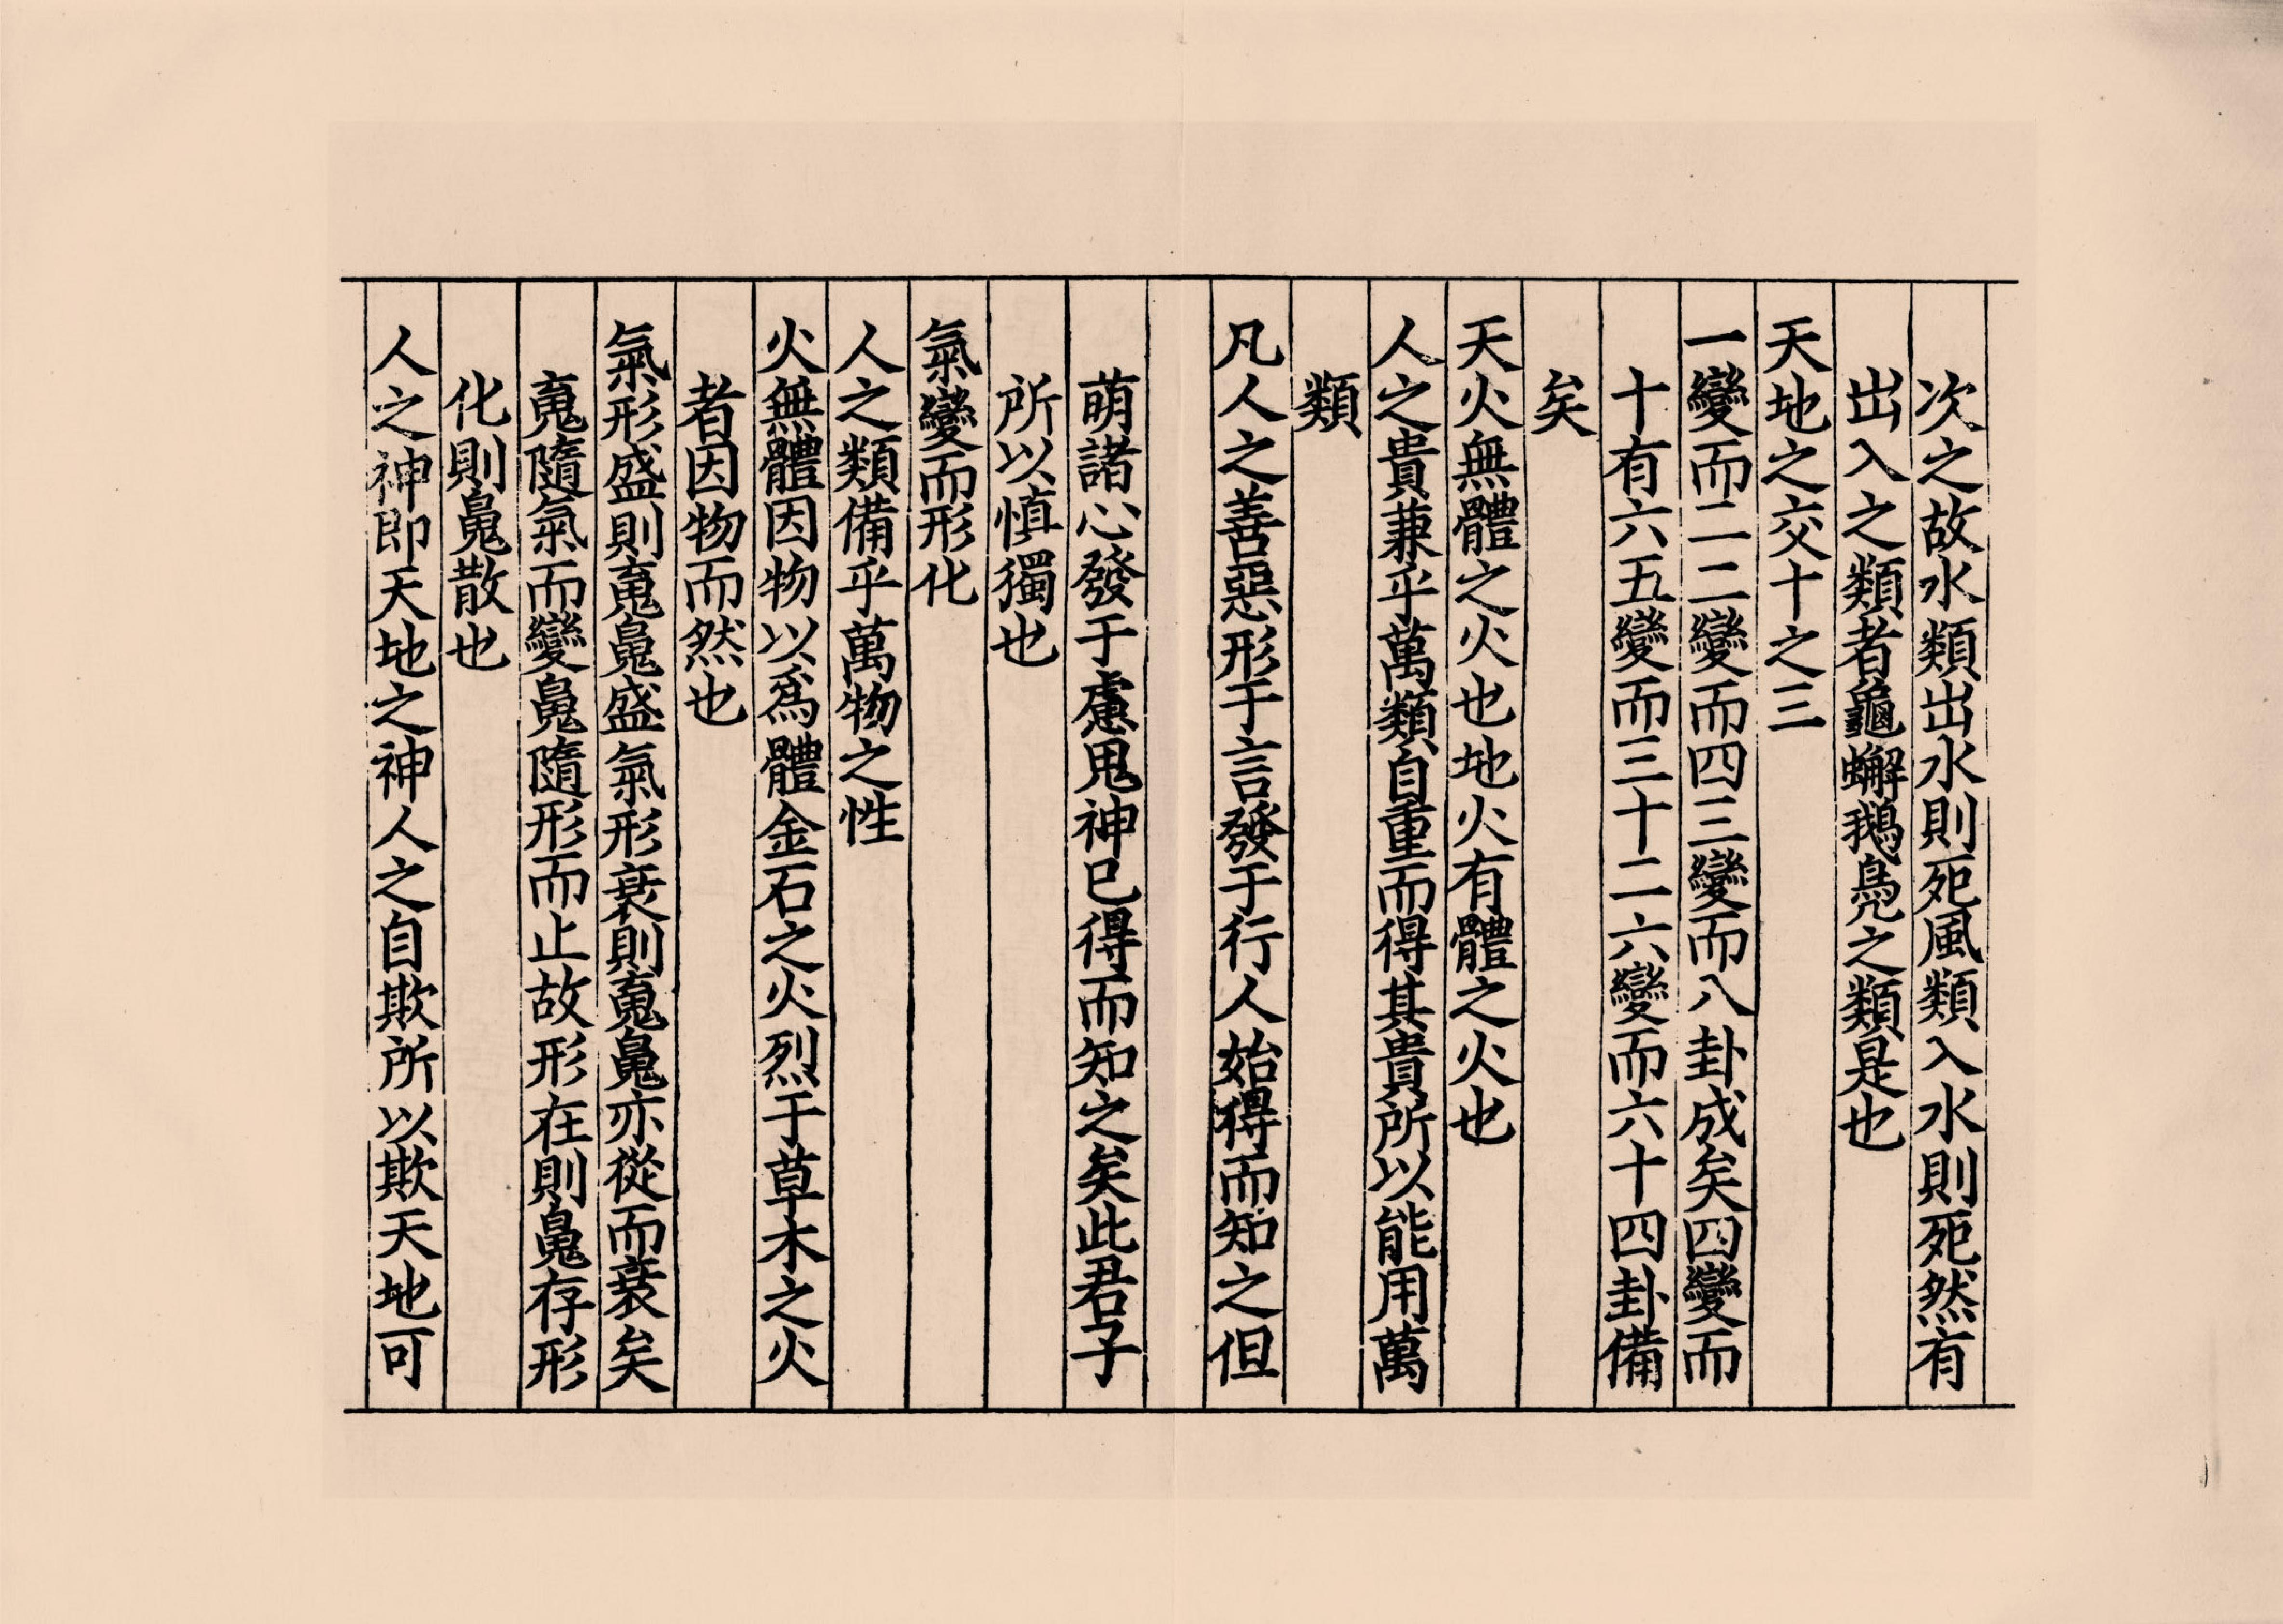 次之故水類出水則死風類入水則死然有
出入之類者龜蠏鵝鳧之類是也
天地之交十之三
一變而二二變而四三變而八卦成矣四變而
十有六五變而三十二六變而六十四卦備
矣
天火無體之火也地火有體之火也
人之貴兼乎萬類自重而得其貴所以能用萬
類
凡人之善惡形于言發于行人始得而知之但
萌諸心發于慮鬼神已得而知之矣此君子
所以慎獨也
氣變而形化
人之類備乎萬物之性
火無體因物以爲體金石之火烈于草木之火
者因物而然也
氣形盛則䰟鬽盛氣形衰則䰟鬽亦從而衰矣
䰟隨氣而變鬽隨形而止故形在則鬽存形
化則鬽散也
人之神即天地之神人之自欺所以欺天地可